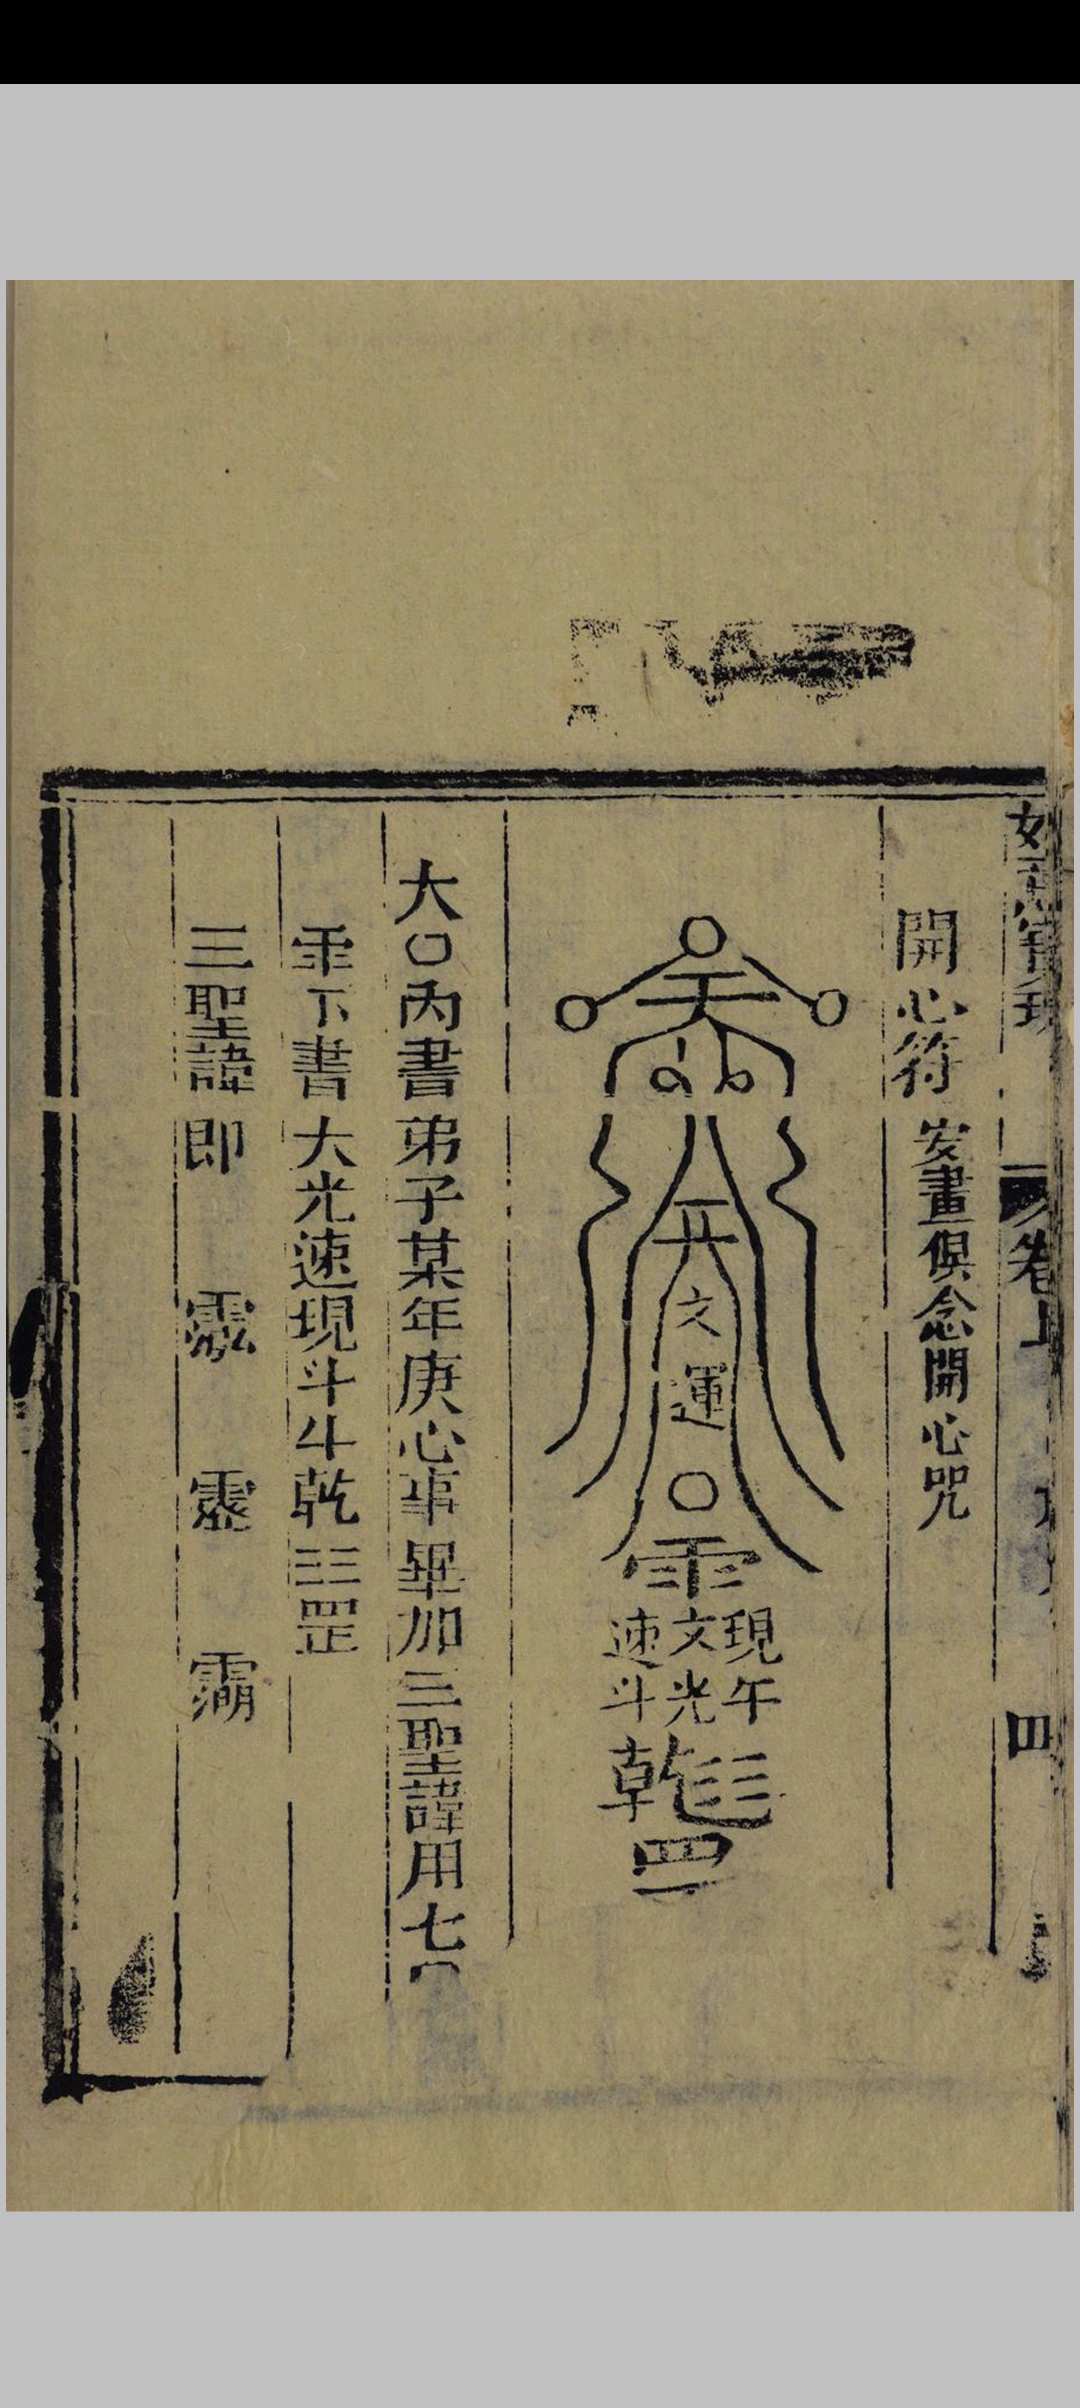 卷上 四
開心符 畫俱念開心咒
文運
〇
現午
文光
速斗
乾
大〇內書弟子某年庚心事畢加三聖諱用七
下書大光速現斗斗乾三三罡
三聖諱即